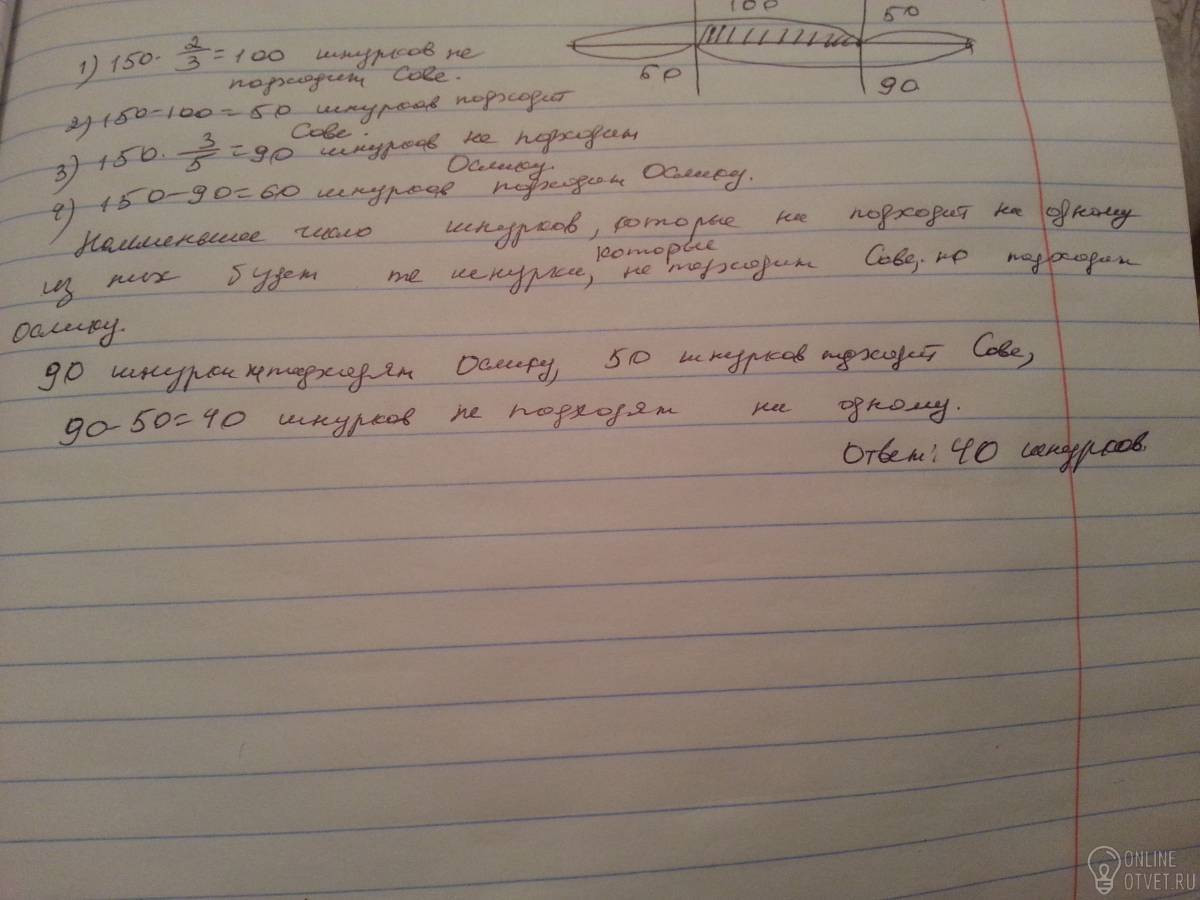 100 50
1) 150 · 2/3 = 100 шнурков не
подходит Сове.
60 90
2) 150-100=50 шнурков подходит
Сове.
3) 150 · 3/5 = 90 шнурков не подходит
Ослику.
4) 150-90=60 шнурков подходит Ослику.
Наименьшее число шнурков, которые не подходит не одному
из них будет те шнурки, которые не подходит Сове, но подходит
Ослику.
90 шнурки не подходят Ослику, 50 шнурков подходит Сове,
90-50=40 шнурков не подходят не одному.
Ответ: 40 шнурков.
ONLINE
OTVET.RU